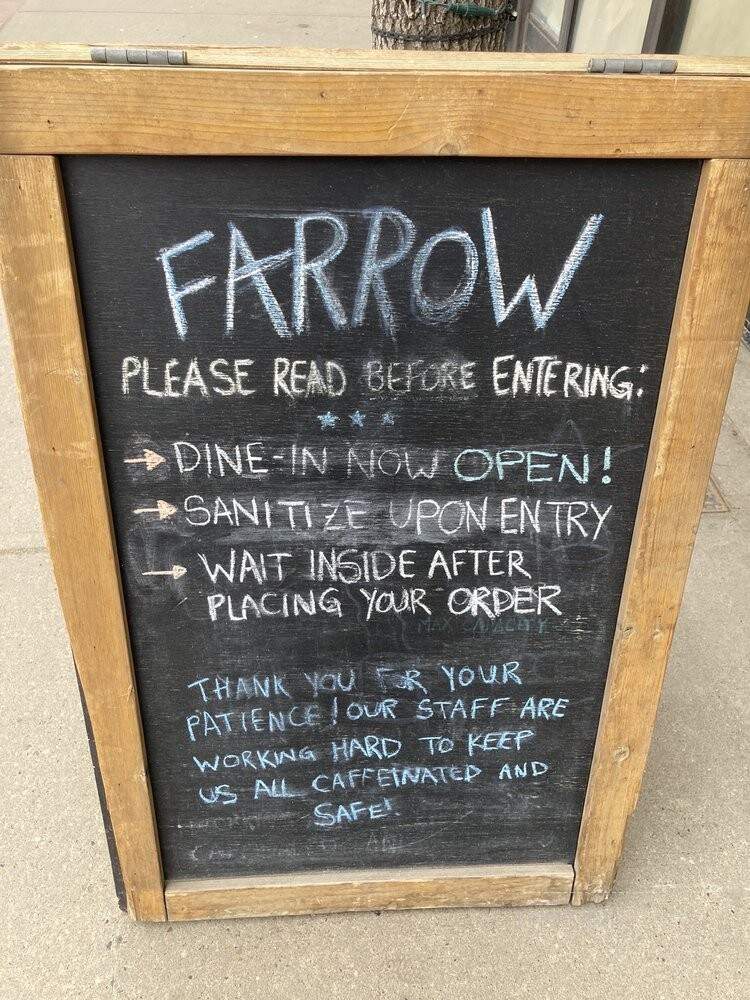 FARROW
PLEASE READ BEFORE ENTERING:
→ DINE-IN NOW OPEN!
→ SANITIZE UPON ENTRY
→ WAIT INSIDE AFTER
PLACING YOUR ORDER
THANK YOU FOR YOUR
PATIENCE! OUR STAFF ARE
WORKING HARD TO KEEP
US ALL CAFFEINATED AND
SAFE!